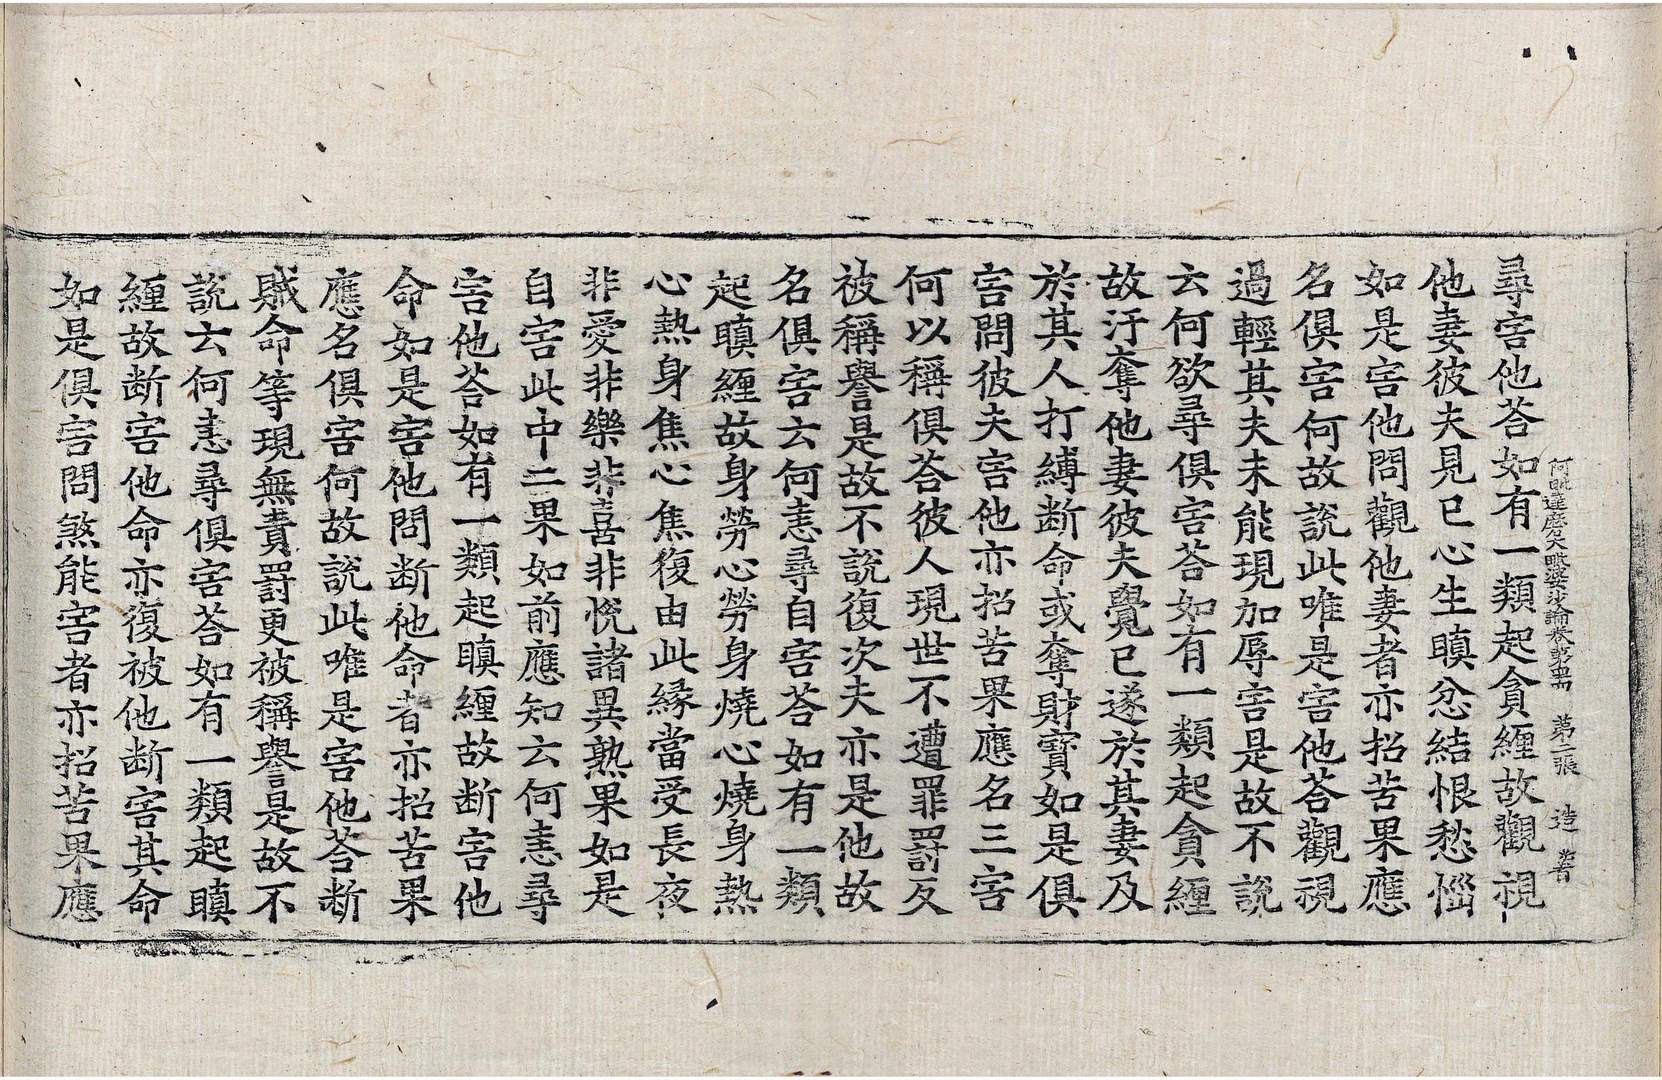 阿毗達磨大毗婆沙論卷第四十四 第二張 造 普
尋害他荅如有一類起貪纏故觀視
他妻彼夫見已心生瞋忿結恨愁惱
如是害他問觀他妻者亦招苦果應
名俱害何故說此唯是害他荅觀視
過輕其夫未能現加辱害是故不說
云何欲尋俱害荅如有一類起貪纏
故汙奪他妻彼夫覺已遂於其妻及
於其人打縛断命或奪財寶如是俱
害問彼夫害他亦招苦果應名三害
何以稱俱荅彼人現世不遭罪罸反
被稱譽是故不說復次夫亦是他故
名俱害云何恚尋自害荅如有一類
起瞋纏故身勞心勞身燒心燒身熱
心熱身焦心焦復由此緣當受長夜
非愛非樂非喜非悅諸異熟果如是
自害此中二果如前應知云何恚尋
害他荅如有一類起瞋纏故断害他
命如是害他問断他命者亦招苦果
應名俱害何故說此唯是害他荅断
賊命等現無責罸更被稱譽是故不
說云何恚尋俱害荅如有一類起瞋
纏故断害他命亦復被他断害其命
如是俱害問煞能害者亦招苦果應